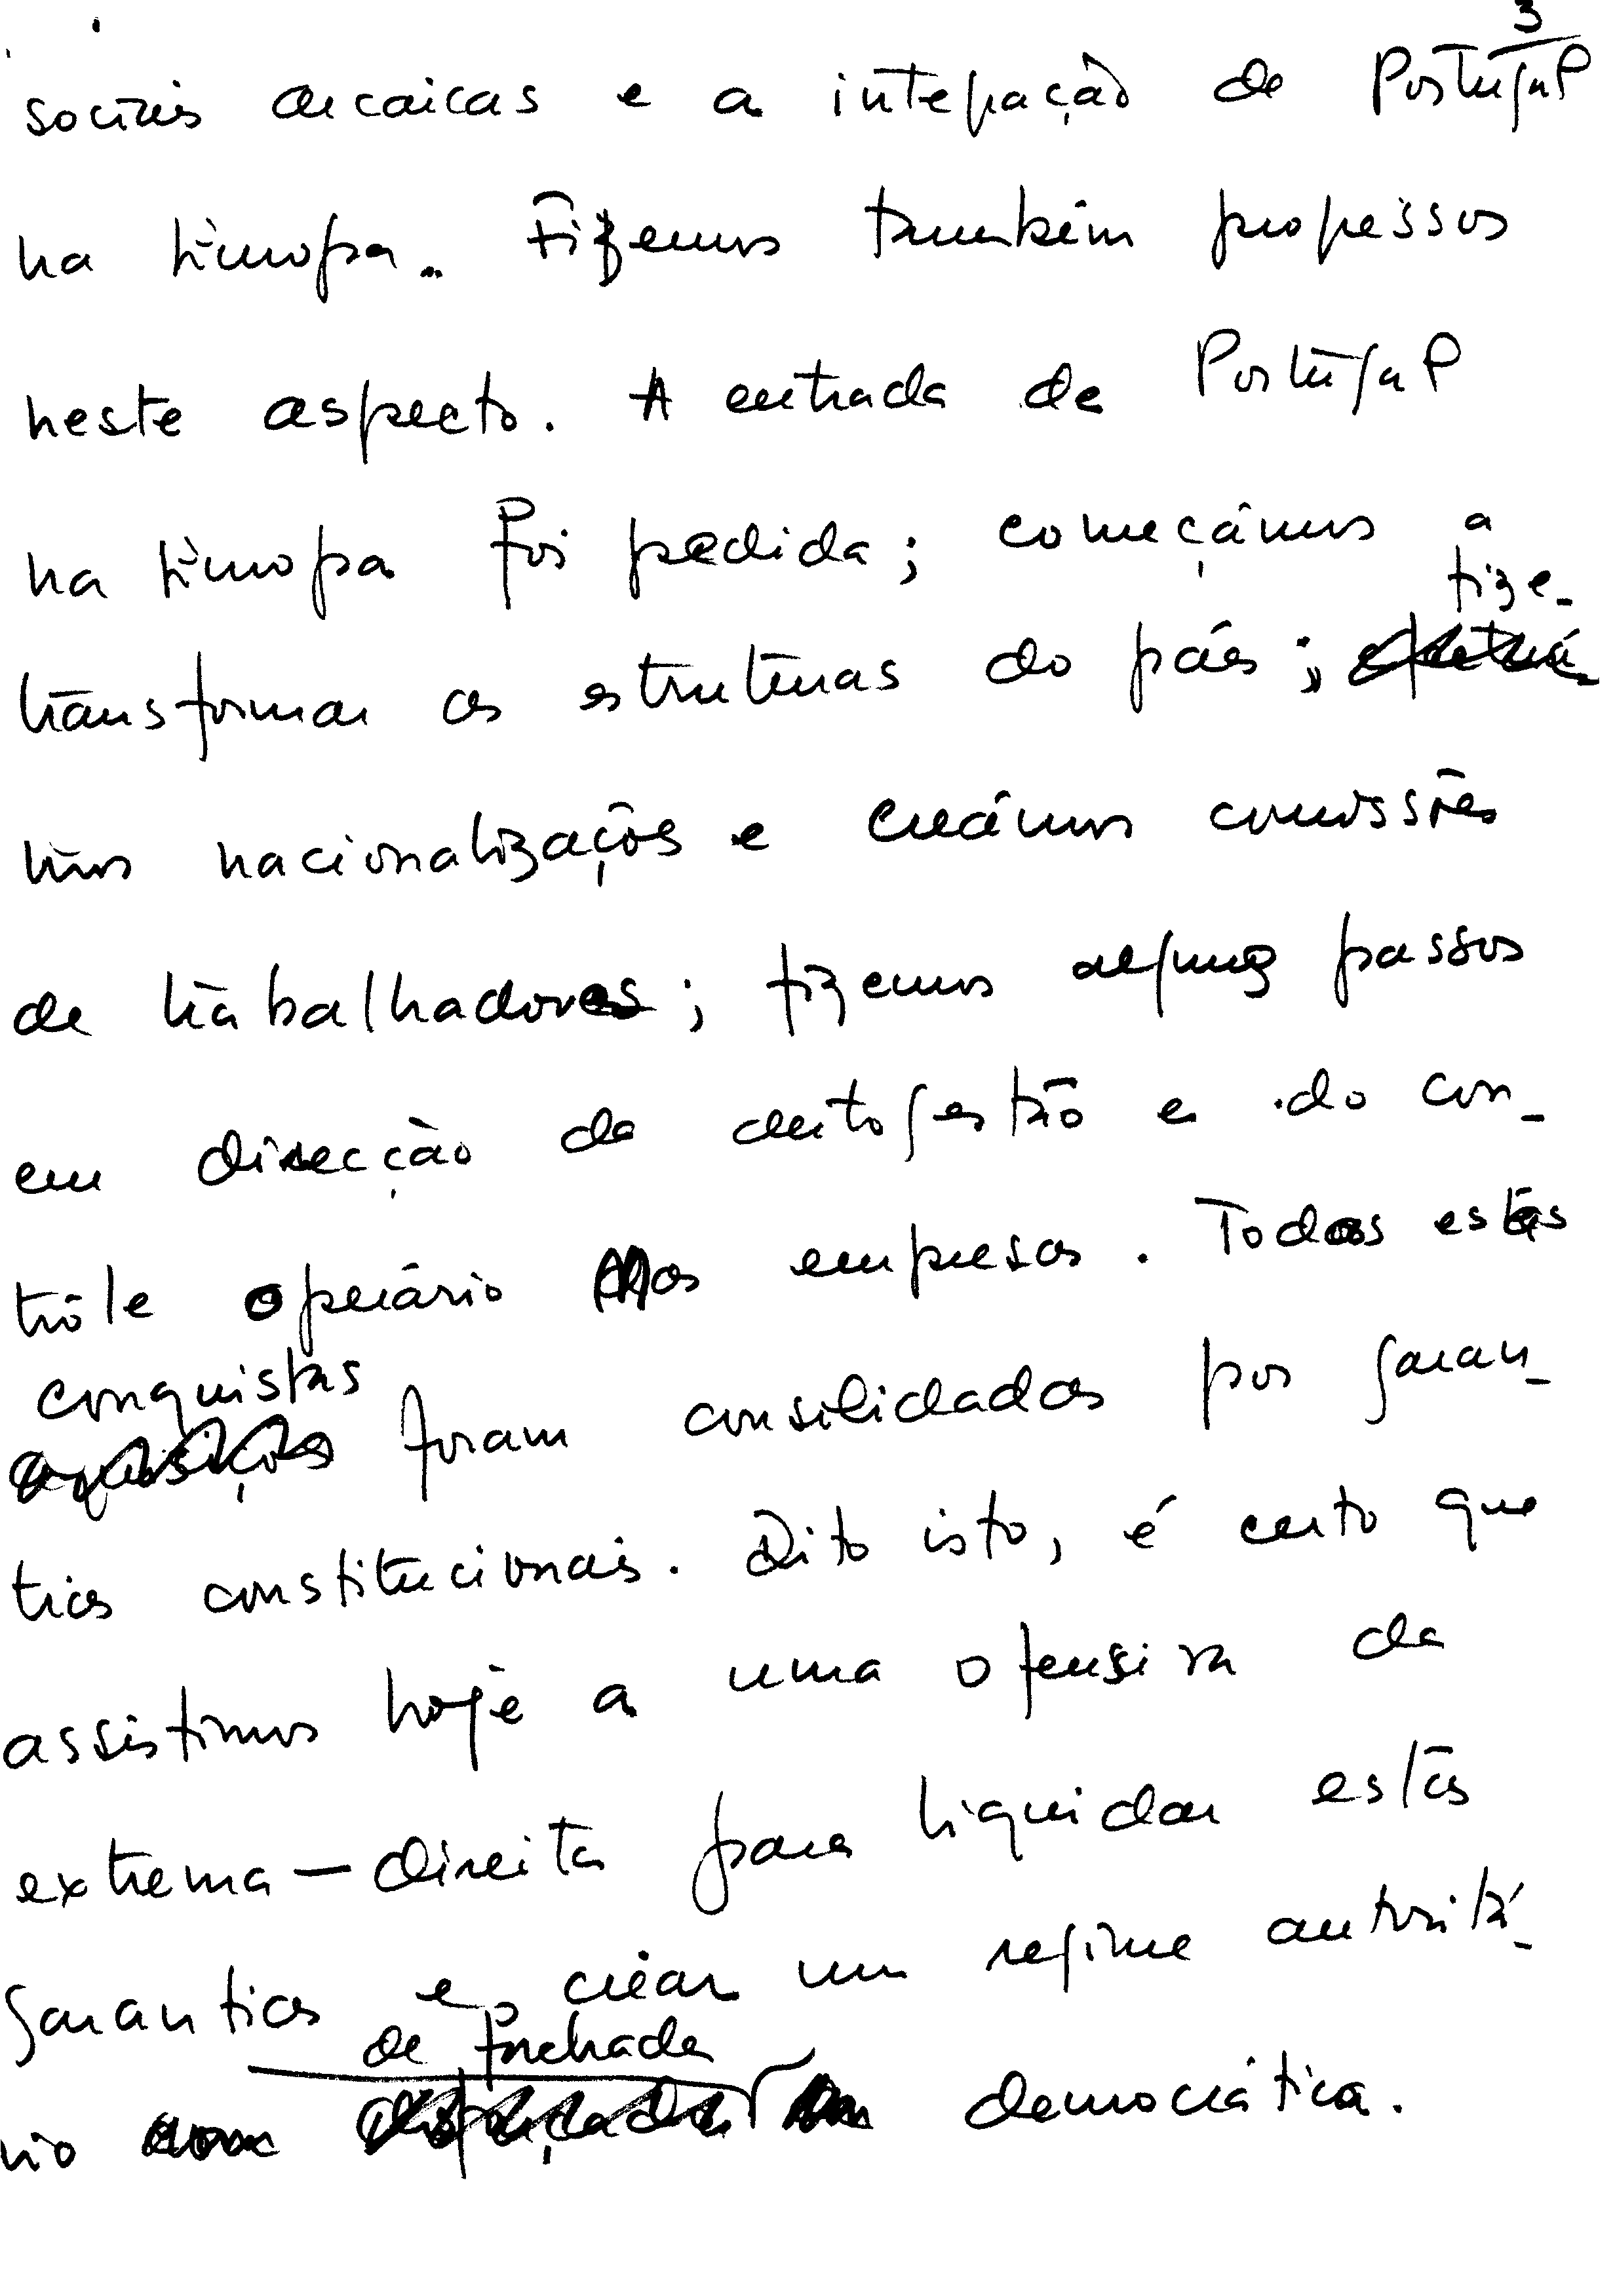 3
sociais arcaicas e a integração de Portugal
na Europa. Fizemos também progressos
neste aspecto. A entrada de Portugal
na Europa foi pedida; começámos a
transformar as estruturas do país; fize-
mos nacionalizações e creámos comissões
de trabalhadores; fizemos alguns passos
em direcção da autogestão e do con-
trôle operário nas empresas. Todas estas
conquistas foram consolidadas por garan-
tias constitucionais. Dito isto, é certo que
assistimos hoje a uma ofensiva da
extrema-direita para liquidar estas
garantias e crear um regime autoritá-
rio de fachada democrática.